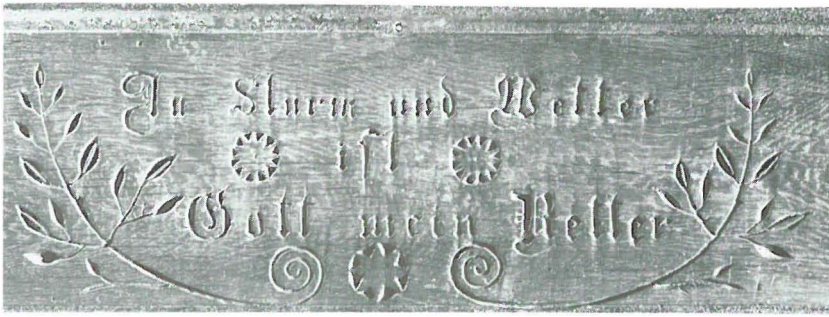 In Sturm und Wetter
ist
Gott mein Retter